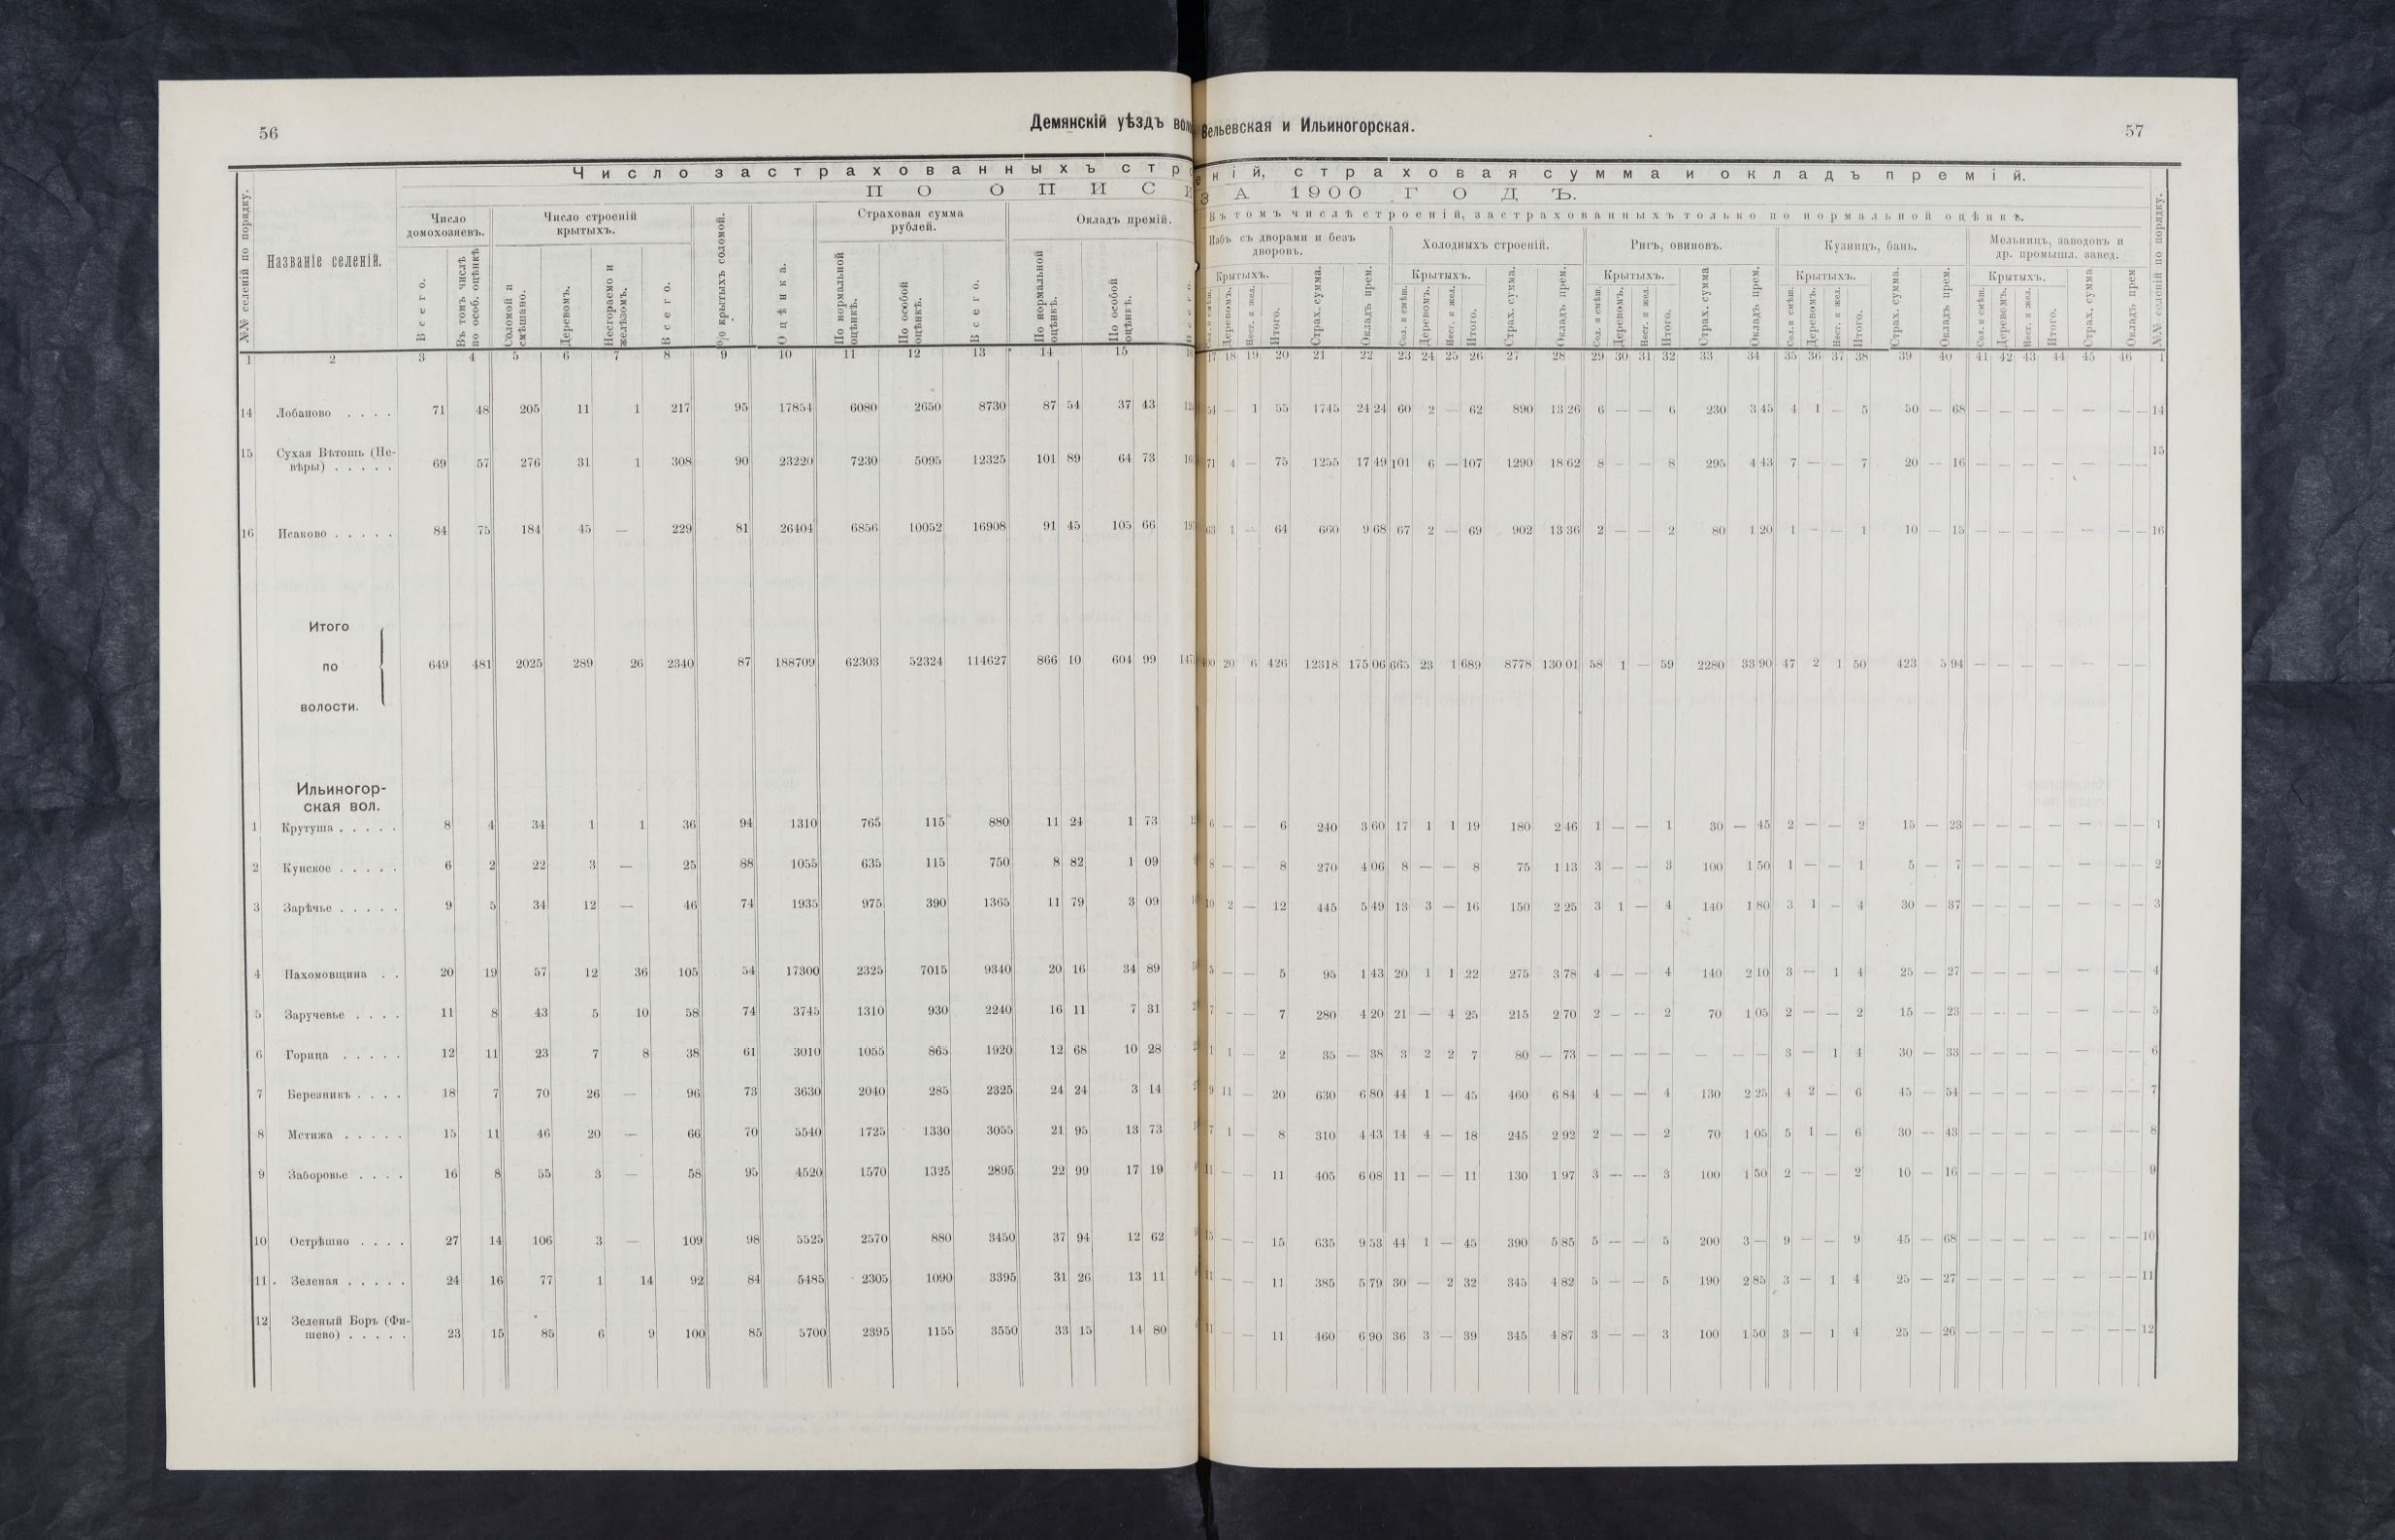 56
Демянскій уѣздъ вол
Число застрахованныхъ стр
ПО ОПИС
№№ селеній по порядку.
Названіе селеній.
Число домохозяевъ.
Всего.
Въ томъ числѣ по особ. оцѣнкѣ
Число строеній крытыхъ.
Соломой и смѣшано.
Деревомъ.
Несгораемо и желѣзомъ.
Всего.
% крытыхъ соломой.
Оцѣнка.
Страховая сумма рублей.
По нормальной оцѣнкѣ.
По особой оцѣнкѣ.
Всего.
Окладъ премій.
По нормальной оцѣнкѣ.
По особой оцѣнкѣ.
1 2 3 4 5 6 7 8 9 10 11 12 13 14 15
14 Лобаново . . . . 71 48 205 11 1 217 95 17854 6080 2650 8730 87 54 37 43
15 Сухая Вѣтошь (Не-
вѣры) . . . . . 69 57 276 31 1 308 90 23220 7230 5095 12325 101 89 64 73
16 Исаково . . . . . 84 75 184 45 — 229 81 26404 6856 10052 16908 91 45 105 66
Итого
по 649 481 2025 289 26 2340 87 188709 62303 52324 114627 866 10 604 99
волости.
Ильиногор-
ская вол.
1 Крутуша . . . . . 8 4 34 1 1 36 94 1310 765 115 880 11 24 1 73
2 Кунское . . . . . 6 2 22 3 — 25 88 1055 635 115 750 8 82 1 09
3 Зарѣчье . . . . . 9 5 34 12 — 46 74 1935 975 390 1365 11 79 3 09
4 Пахомовщина . . 20 19 57 12 36 105 54 17300 2325 7015 9340 20 16 34 89
5 Заручевье . . . . 11 8 43 5 10 58 74 3745 1310 930 2240 16 11 7 31
6 Горица . . . . . 12 11 23 7 8 38 61 3010 1055 865 1920 12 68 10 28
7 Березникъ . . . . 18 7 70 26 — 96 73 3630 2040 285 2325 24 24 3 14
8 Мстижа . . . . . 15 11 46 20 — 66 70 5540 1725 1330 3055 21 95 13 73
9 Заборовье . . . . 16 8 55 3 — 58 95 4520 1570 1325 2895 22 99 17 19
10 Острѣшно . . . . 27 14 106 3 — 109 98 5525 2570 880 3450 37 94 12 62
11 Зеленая . . . . . 24 16 77 1 14 92 84 5485 2305 1090 3395 31 26 13 11
12 Зеленый Боръ (Фи-
шево) . . . . . 23 15 85 6 9 100 85 5700 2395 1155 3550 33 15 14 80
Вельевская и Ильиногорская.
57
еній, страховая сумма и окладъ премій.
ЗА 1900 ГОДЪ.
Въ томъ числѣ строеній, застрахованныхъ только по нормальной оцѣнкѣ.
Избъ съ дворами и безъ дворовъ.
Крытыхъ.
Деревомъ.
Несг. и жел.
Итого.
Страх. сумма.
Окладъ прем.
Холодныхъ строеній.
Крытыхъ.
Сол. и смѣш.
Деревомъ.
Несг. и жел.
Итого.
Страх. сумма.
Окладъ прем.
Ригъ, овиновъ.
Крытыхъ.
Сол. и смѣш.
Деревомъ.
Несг. и жел.
Итого.
Страх. сумма
Окладъ прем.
Кузницъ, бань.
Крытыхъ.
Сол. и смѣш.
Деревомъ.
Несг. и жел.
Итого.
Страх. сумма.
Окладъ прем.
Мельницъ, заводовъ и др. промышл. завед.
Крытыхъ.
Сол. и смѣш.
Деревомъ.
Несг. и жел.
Итого.
Страх. сумма
Окладъ прем
№№ селеній по порядку.
17 18 19 20 21 22 23 24 25 26 27 28 29 30 31 32 33 34 35 36 37 38 39 40 41 42 43 44 45 46 1
54 — 1 55 1745 24 24 60 2 — 62 890 13 26 6 — — 6 230 3 45 4 1 — 5 50 — 68 — — — — — — — 14
71 4 — 75 1255 17 49 101 6 — 107 1290 18 62 8 — — 8 295 4 43 7 — — 7 20 — 16 — — — — — — — 15
63 1 — 64 660 9 68 67 2 — 69 902 13 36 2 — — 2 80 1 20 1 — — 1 10 — 15 — — — — — — — 16
400 20 6 426 12318 175 06 665 23 1 689 8778 130 01 58 1 — 59 2280 33 90 47 2 1 50 423 5 94 — — — — — — —
6 — — 6 240 3 60 17 1 1 19 180 2 46 1 — — 1 30 — 45 2 — — 2 15 — 23 — — — — — — — 1
8 — — 8 270 4 06 8 — — 8 75 1 13 3 — — 3 100 1 50 1 — — 1 5 — 7 — — — — — — — 2
10 2 — 12 445 5 49 13 3 — 16 150 2 25 3 1 — 4 140 1 80 3 1 — 4 30 — 37 — — — — — — — 3
5 — — 5 95 1 43 20 1 1 22 275 3 78 4 — — 4 140 2 10 3 — 1 4 25 — 27 — — — — — — — 4
7 — — 7 280 4 20 21 — 4 25 215 2 70 2 — — 2 70 1 05 2 — — 2 15 — 23 — — — — — — — 5
1 1 — 2 35 — 38 3 2 2 7 80 — 73 — — — — — — — 3 — 1 4 30 — 33 — — — — — — — 6
9 11 — 20 630 6 80 44 1 — 45 460 6 84 4 — — 4 130 2 25 4 2 — 6 45 — 54 — — — — — — — 7
7 1 — 8 310 4 43 14 4 — 18 245 2 92 2 — — 2 70 1 05 5 1 — 6 30 — 43 — — — — — — — 8
11 — — 11 405 6 08 11 — — 11 130 1 97 3 — — 3 100 1 50 2 — — 2 10 — 16 — — — — — — — 9
15 — — 15 635 9 53 44 1 — 45 390 5 85 5 — — 5 200 3 — 9 — — 9 45 — 68 — — — — — — — 10
11 — — 11 385 5 79 30 — 2 32 345 4 82 5 — — 5 190 2 85 3 — 1 4 25 — 27 — — — — — — — 11
11 — — 11 460 6 90 36 3 — 39 345 4 87 3 — — 3 100 1 50 3 — 1 4 25 — 26 — — — — — — — 12